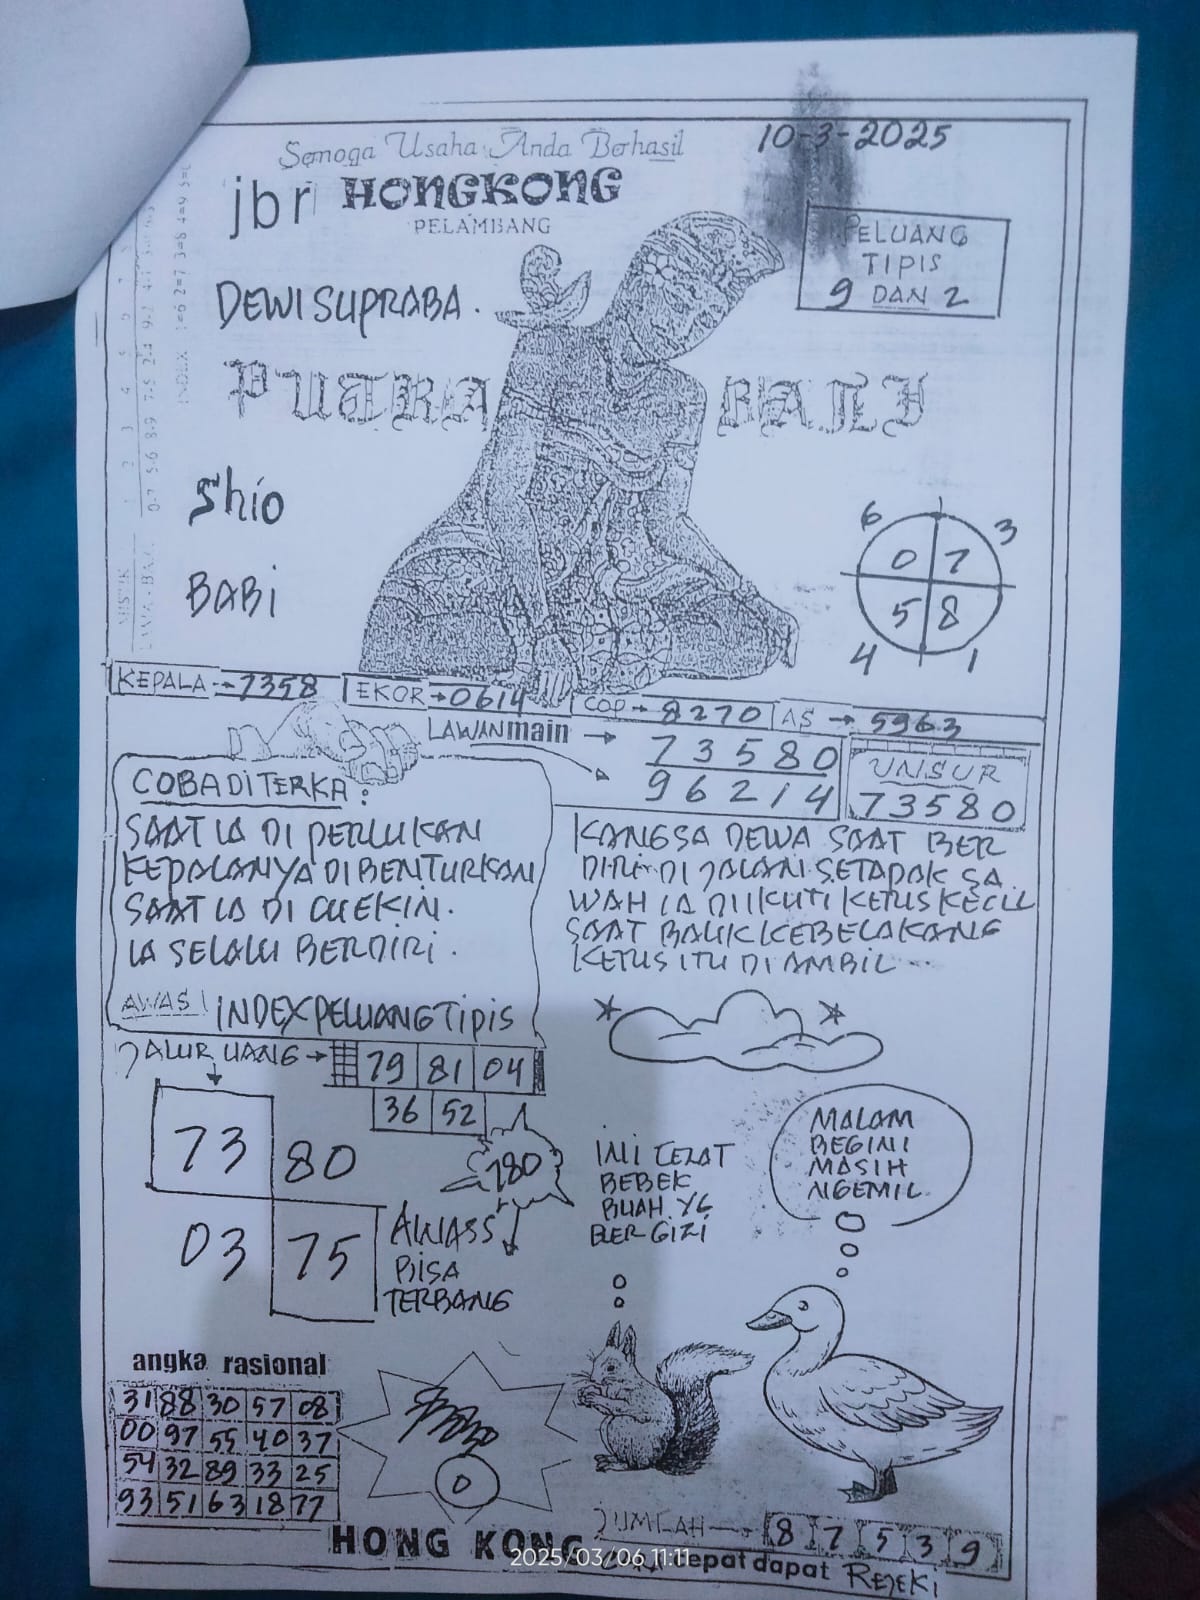 10-3-2025
Semoga Usaha Anda Berhasil
jbr HONGKONG
PELAMBANG
PELUANG
TIPIS
9 DAN 2
DEWI SUPRABA.
PUTRA BALI
Shio
BABi
6 3
0 7
5 8
4 1
KEPALA → 7358 EKOR → 0614 COP → 8270 AS → 5963
LAWAN main → 73580
96214
UNSUR
73580
COBA DITERKA:
SAAT IA DI PERLUKAN
KEPALANYA DIBENTURKAN
SAAT IA DI CUEKIN.
IA SELALU BERDIRI.
AWAS! INDEX PELUANG TIPIS
KANGSA DEWA SAAT BER
DIRI DI JALAN SETAPAK SA
WAH IA DIIKUTI KETUS KECIL
SAAT BALIK KEBELAKANG
KETUS ITU DI AMBIL...
JALUR UANG → 79 81 04
36 52
73 80
03 75
780
AWASS
BISA
TERBANG
INI CEZAT
BEBEK
BUAH. YG
BERGIZI
MALAM
BEGINI
MASIH
NGEMIL.
angka rasional
31 88 30 57 08
00 97 55 40 37
54 32 89 33 25
93 51 63 18 77
0
JUMLAH → 8 7 5 3 9
HONG KONG
cepat dapat REJEKi
2025/03/06 11:11